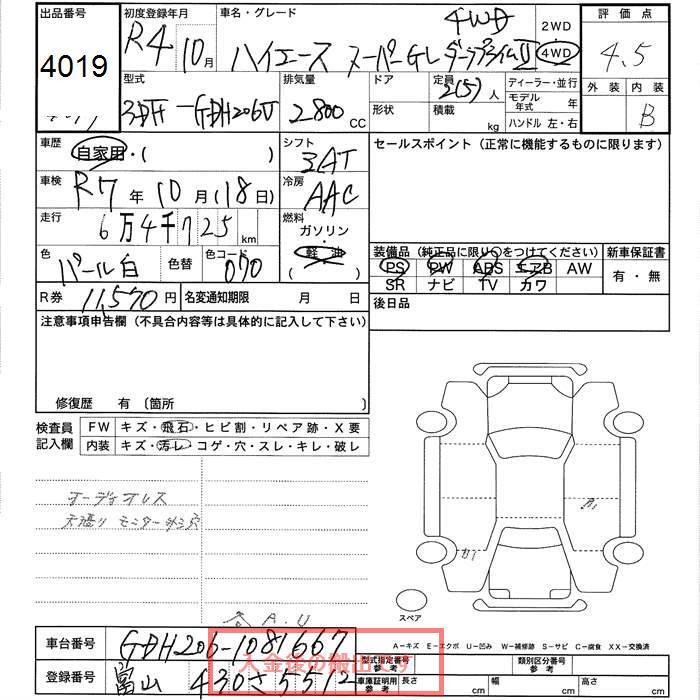 出品番号 初度登録年月 車名・グレード 評価点
4019
R4 10月 ハイエース スーパーGL ダークプライムII 4WD 2WD 4WD 4.5
型式 排気量 ドア 定員 ディーラー・並行 外装 内装
3DF-GDH206V 2800 CC 2(5)人 モデル年式 年
形状 積載 kg ハンドル 左・右 B
車歴 シフト セールスポイント (正常に機能するものに限ります)
自家用・( ) 3AT
車検 冷房
R7年10月(18日) AAC
走行 燃料
6万4千725km ガソリン
色 色替 色コード 軽油 装備品(純正品に限り○をつけてください) 新車保証書
パール白 070 ( ) PS PW ABS エアB AW 有・無
SR ナビ TV カワ
R券 11,570円 名変通知期限 月 日 後日品
注意事項申告欄(不具合内容等は具体的に記入して下さい)
修復歴 有 〔箇所 〕
検査員記入欄 FW キズ・飛石・ヒビ割・リペア跡・X要
内装 キズ・汚レ・コゲ・穴・スレ・キレ・破レ
オーディオレス
天張り モニター外シ穴
A1
U1
スペア
A.U
A-キズ E-エクボ U-凹み W-補修跡 S-サビ C-腐食 XX-交換済
車台番号 GDH206-1081667 型式指定番号 参考 類別区分番号 参考
入金後の搬出です
登録番号 富山 430さ5512 車庫証明用参考 長さ cm 幅 cm 高さ cm